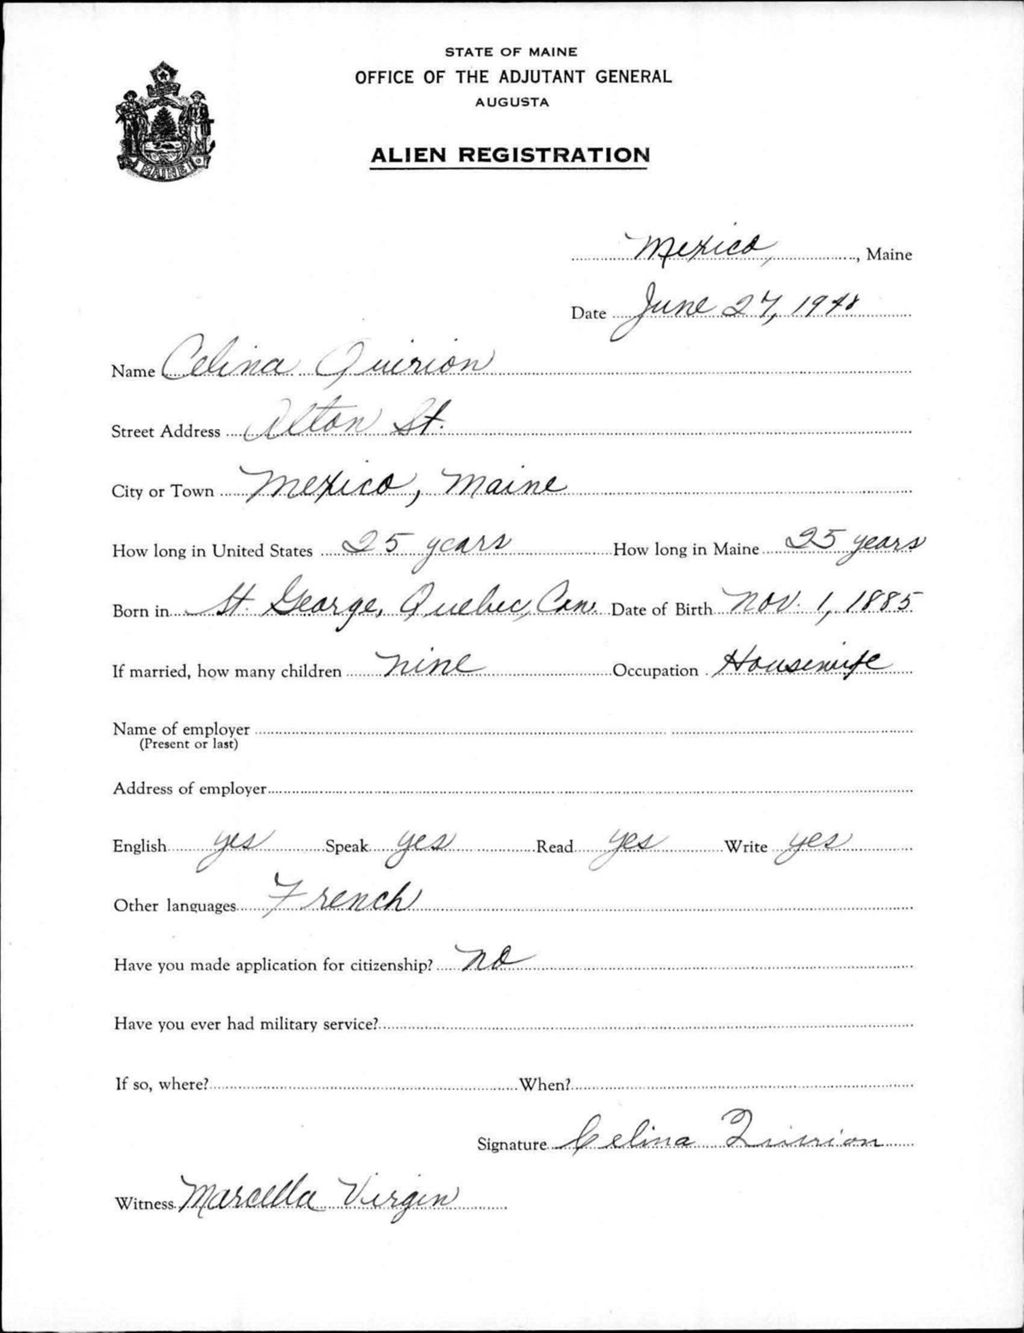 STATE OF MAINE
OFFICE OF THE ADJUTANT GENERAL
AUGUSTA
ALIEN REGISTRATION
MAINE
Mexico, , Maine
Date June 27, 1940
Name Celina Quirion
Street Address Alton St.
City or Town Mexico, Maine
How long in United States 25 years How long in Maine 25 years
Born in St. George, Quebec, Can. Date of Birth Nov. 1, 1885
If married, how many children nine Occupation Housewife
Name of employer
(Present or last)
Address of employer
English yes Speak yes Read yes Write yes
Other languages French
Have you made application for citizenship? no
Have you ever had military service?
If so, where? When?
Signature Celina Quirion
Witness Marcella Virgin